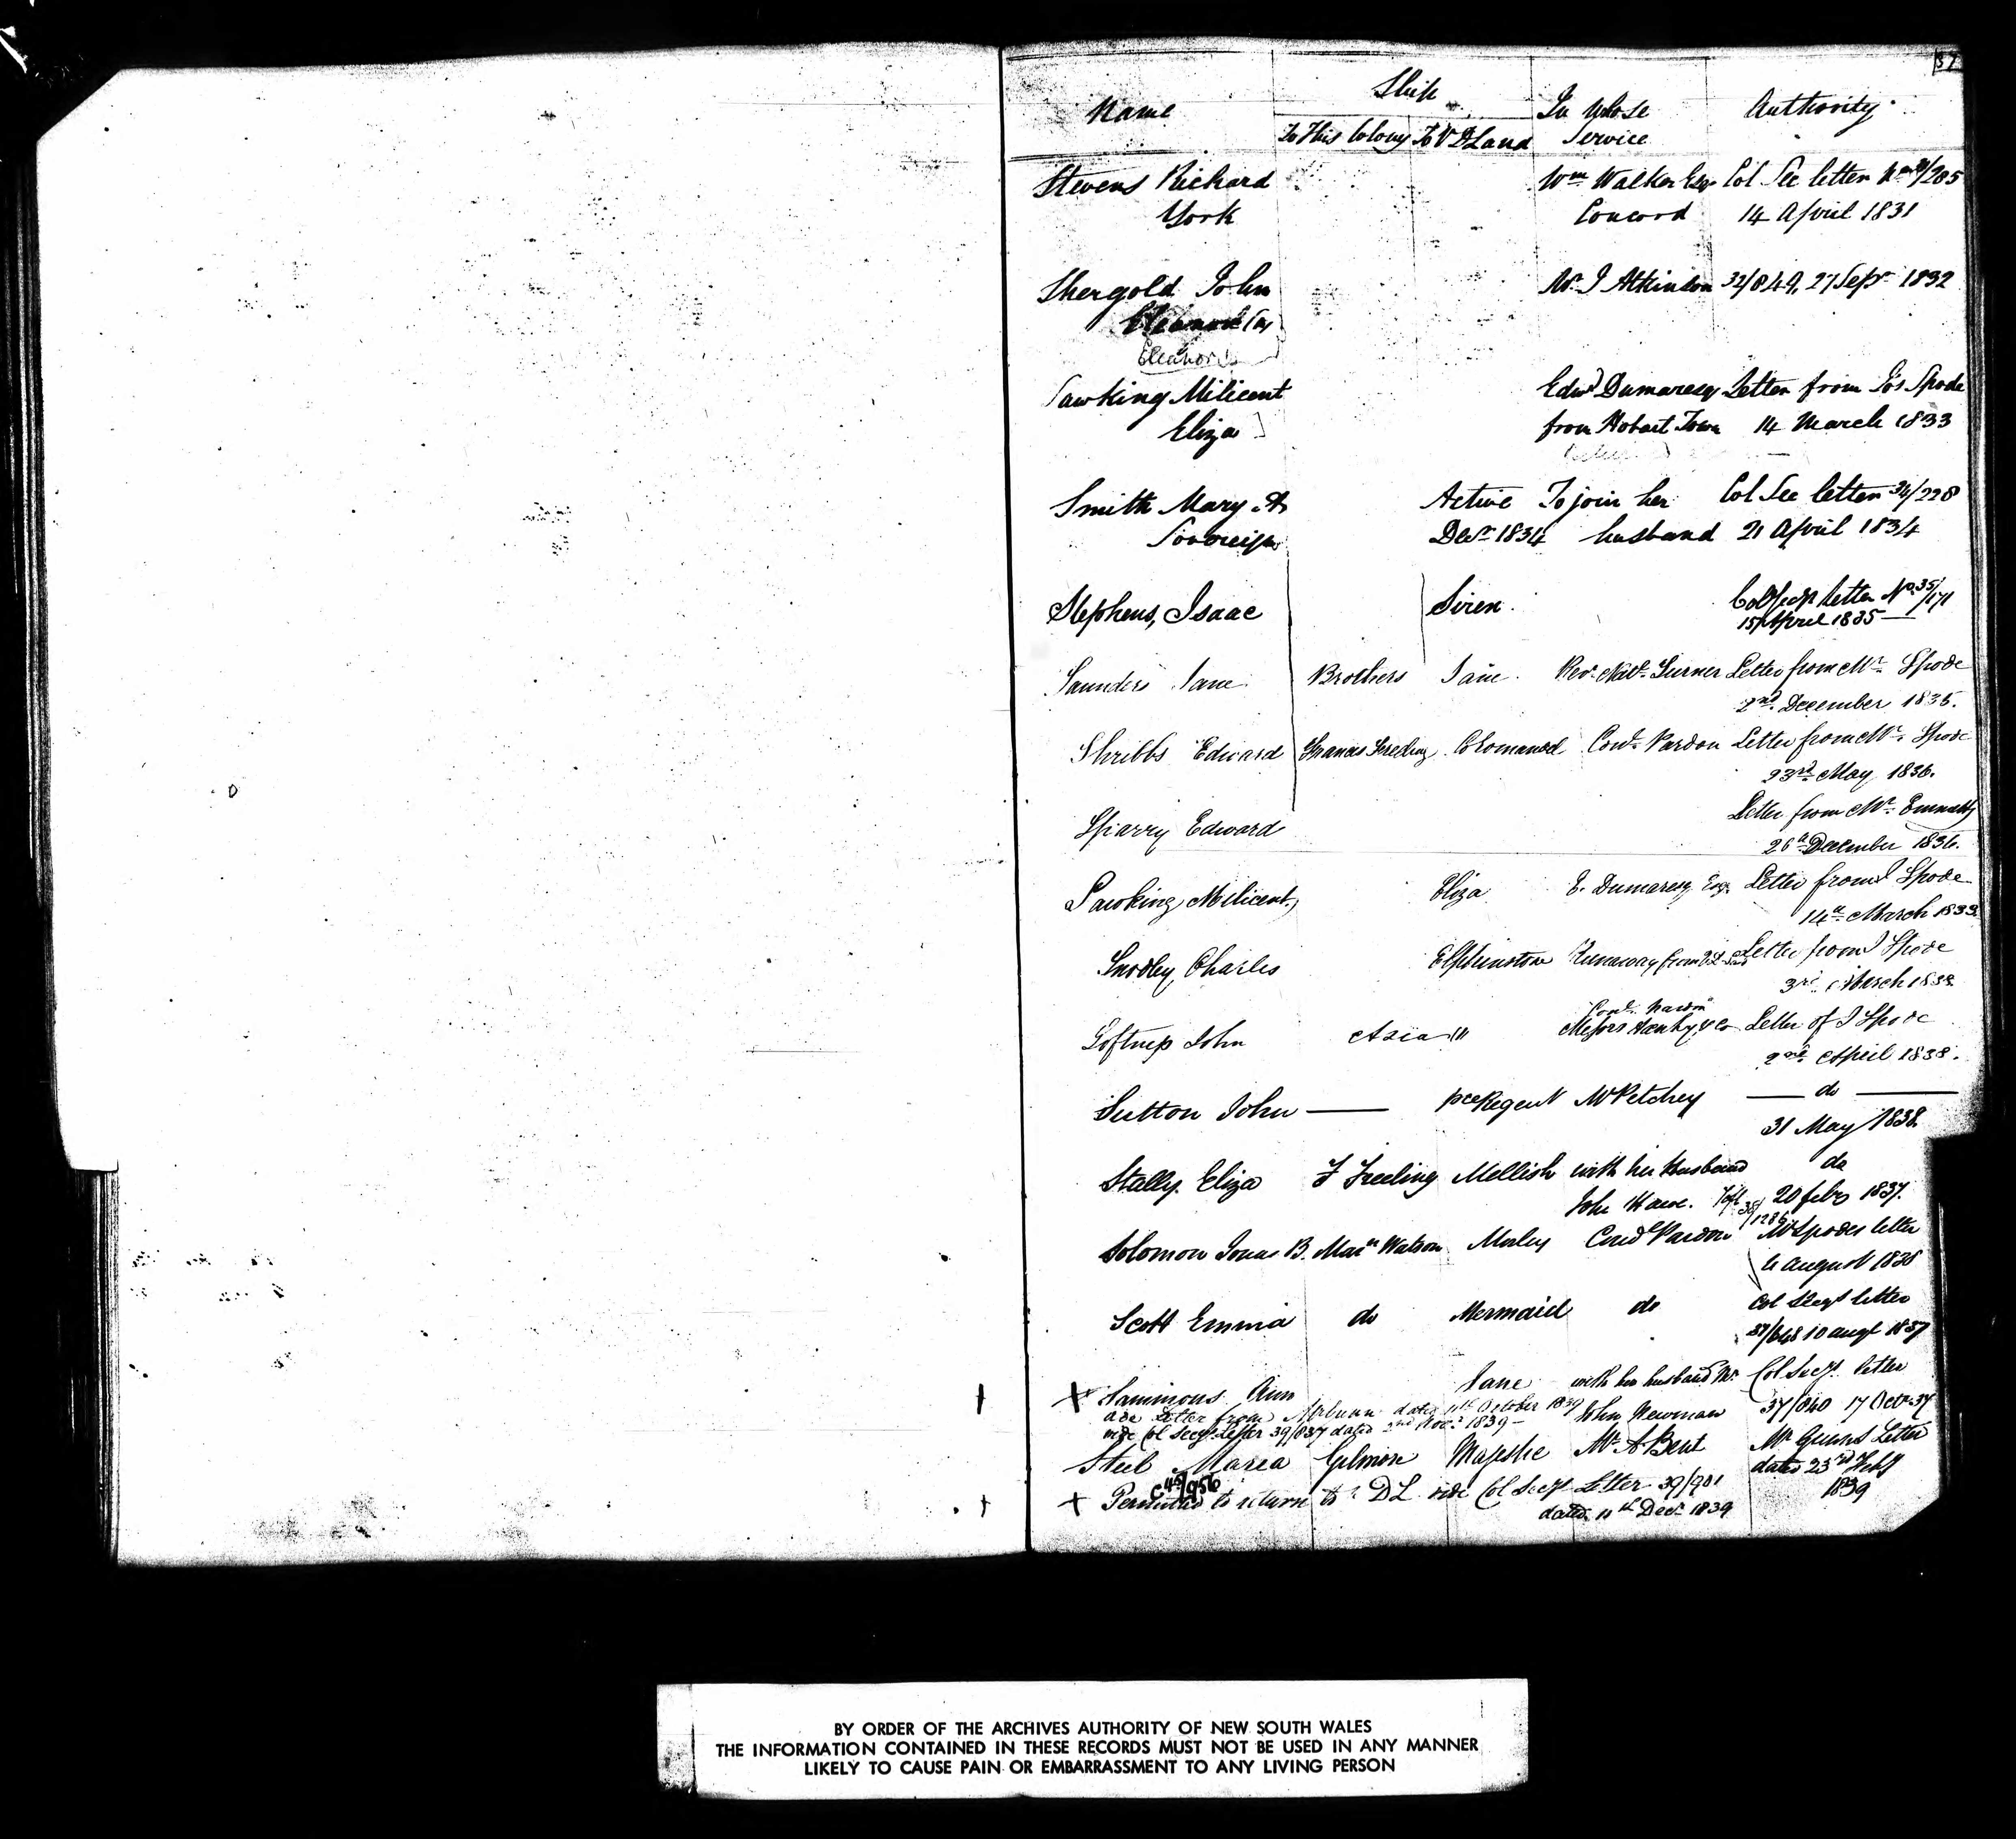 37
Name Ship In whose Authority
To This Colony To V D Land Service
Stevens Richard Wm Walker Esqr Col Sec letter No 31/285
York Concord 14 April 1831
Shergold John Mr J Atkinson 32/849, 27 Sepr 1832
Eleanor
Sawking Milicent Edwd Dumaresq Letter from Jos Spode
Eliza from Hobart Town 14 March 1833
Smith Mary A Active To join her Col Sec letter 34/228
Sovereign Decr 1834 husband 21 April 1834
Stephens, Isaac Siren Col Secy letter No 35/171
15 April 1835
Saunders Jane Brothers Jane Revd Natl Turner Letter from Mr Spode
2nd December 1835.
Shribbs Edward Francis Freeling Coromandel Condl Pardon Letter from Mr Spode
23rd May 1836.
Letter from Mr Emmett
Sparry Edward
26th December 1836.
Sawking Milicent Eliza E. Dumaresq Esqr Letter from J Spode
14th March 1833
Charles Elphinstone Runaway from V D Land Letter from J Spode
3rd March 1838
Condl Pardon
John Asia Messrs & Co Letter of J Spode
2nd April 1838.
Sutton John — pce Regent Mr Petchey — do —
31 May 1838
Stally Eliza F Freeling Mellish with her Husband do
John 20 feby 1837.
38/1286
Solomon Jonas B. Mars Watson Morley Cond Pardon Mr Spodes letter
6 August 1838
Scott Emma do Mermaid do Col Secys letter
37/648 10 augt 1837
+ Sammons Ann Jane with her husband Mr Col Secys letter
vide Letter from dated 11th October 1839 John Newman 37/840 17 Octr 37
vide Col Secys Letter 39/837 dated 2nd Novr 1839 —
Steel Maria Gilmore Majestic Mr A Bent Mr Gunns Letter
dated 23rd Feby
1839
C 42/956
+ Permitted to return to V D L vide Col Secys Letter 39/901
dated 11th Decr 1839
BY ORDER OF THE ARCHIVES AUTHORITY OF NEW SOUTH WALES
THE INFORMATION CONTAINED IN THESE RECORDS MUST NOT BE USED IN ANY MANNER
LIKELY TO CAUSE PAIN OR EMBARRASSMENT TO ANY LIVING PERSON